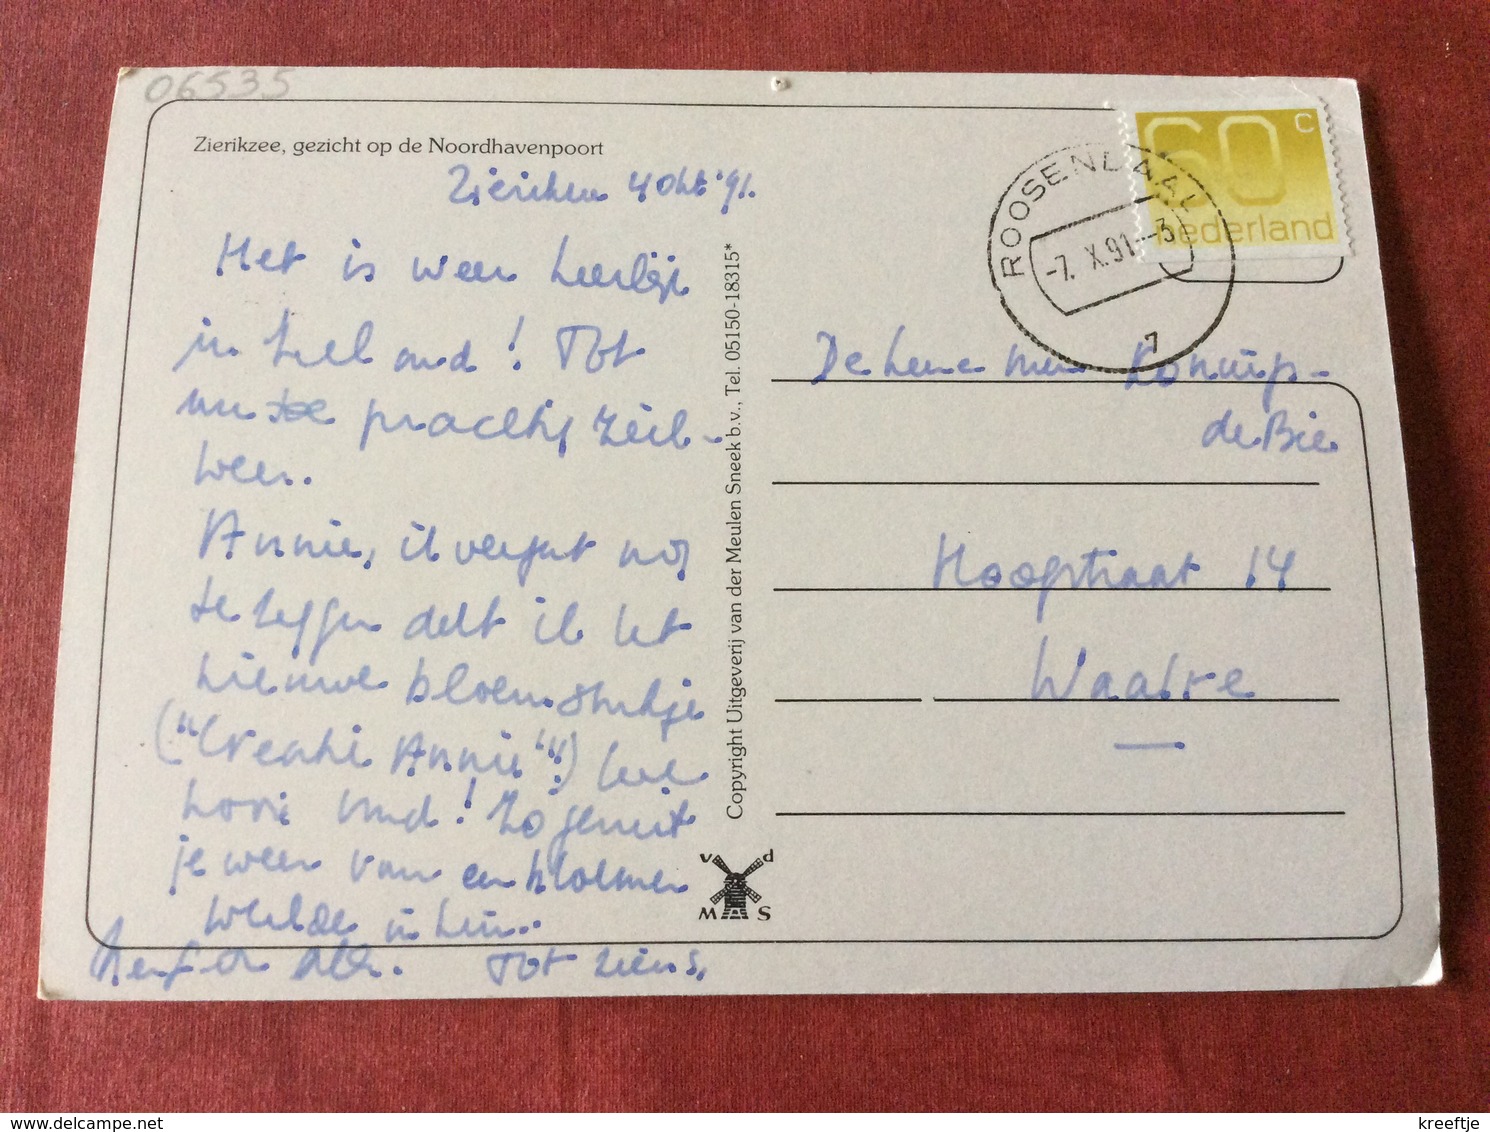 06535
Zierikzee, gezicht op de Noordhavenpoort
4 Okt '91.
Het is weer heerlijk
in Zeeland! Tot
nu toe prachtig zeil-
weer.
Annie, ik vergat nog
te zeggen dat ik het
nieuwe bloemstukje
("Creatie Annie"!) heel
mooi vind! Zo geniet
je weer van een bloemen
weelde in huis.
Tot ziens,
Copyright Uitgeverij van der Meulen Sneek b.v., Tel. 05150-18315*
v d
M S
60 c
nederland
ROOSENDAAL
-7. X.91.--3
7
De heer en mevr
de Bie
Hoogstraat 14
Waalre
kreeftje